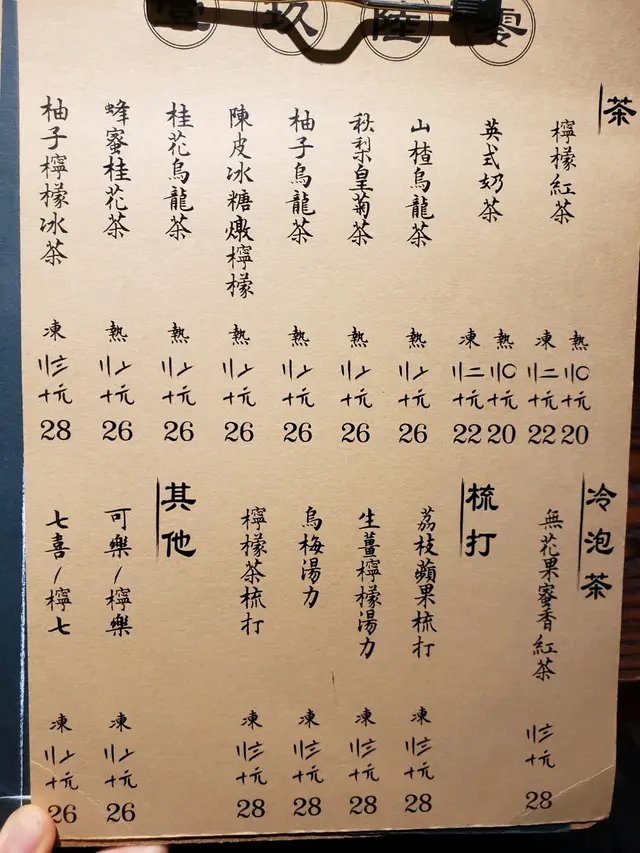 零陸玖壹
茶
檸檬紅茶
熱
〢〇
十元
20
凍
〢二
十元
22
英式奶茶
熱
〢〇
十元
20
凍
〢二
十元
22
山楂烏龍茶
熱
〢〦
十元
26
秋梨皇菊茶
熱
〢〦
十元
26
柚子烏龍茶
熱
〢〦
十元
26
陳皮冰糖燉檸檬
熱
〢〦
十元
26
桂花烏龍茶
熱
〢〦
十元
26
蜂蜜桂花茶
熱
〢〦
十元
26
柚子檸檬冰茶
凍
〢〨
十元
28
冷泡茶
無花果蜜香紅茶
〢〨
十元
28
梳打
荔枝蘋果梳打
凍
〢〨
十元
28
生薑檸檬湯力
凍
〢〨
十元
28
烏梅湯力
凍
〢〨
十元
28
檸檬茶梳打
凍
〢〨
十元
28
其他
可樂/檸樂
凍
〢〦
十元
26
七喜/檸七
凍
〢〦
十元
26